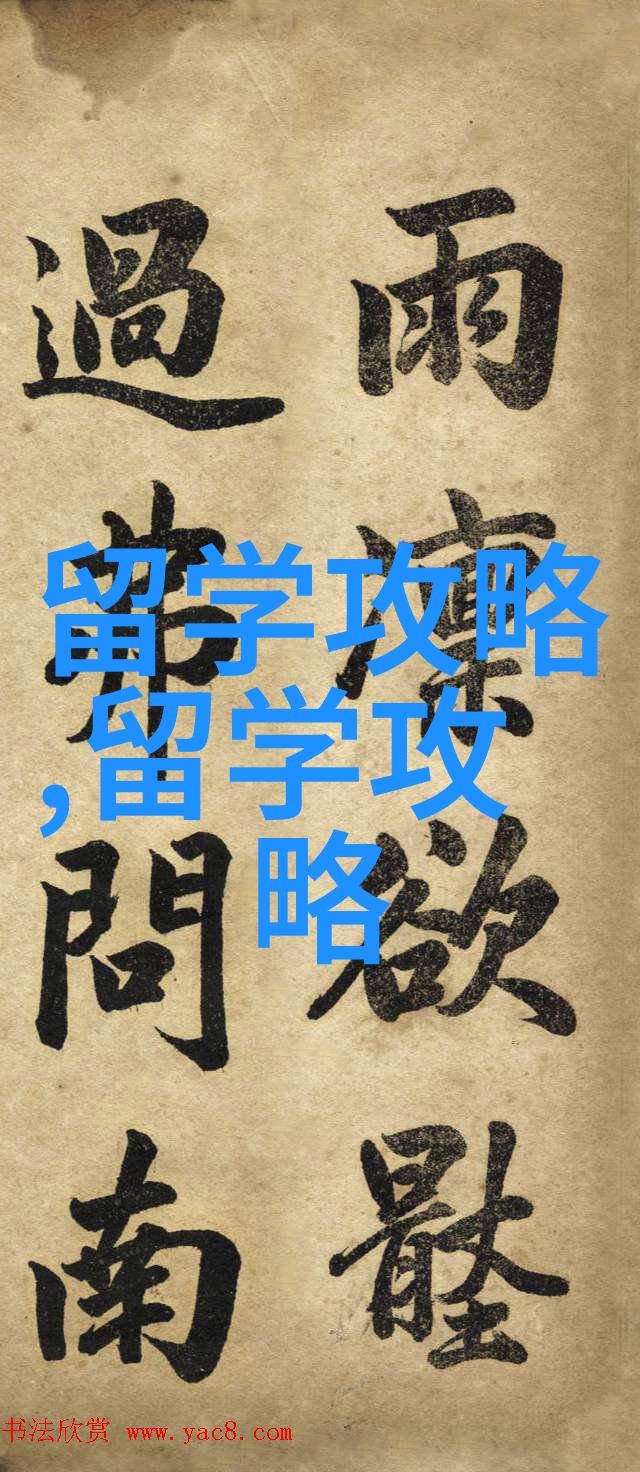 雨凜欲
過弗問南
留学攻略
,留学攻
略
书法欣赏 www.yac8.com